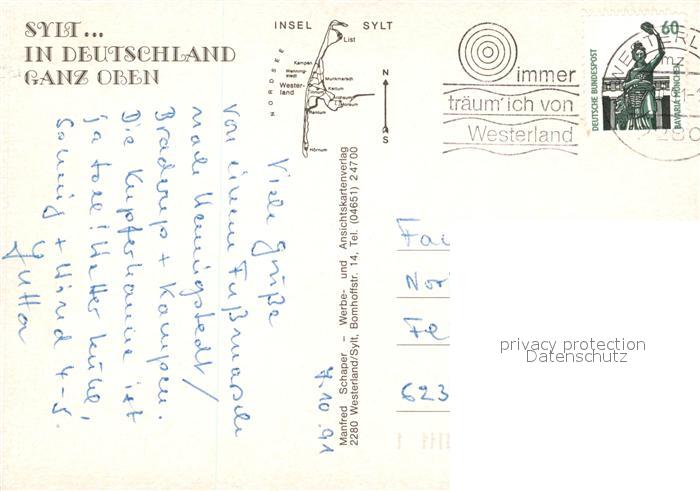 SYLT...
IN DEUTSCHLAND
GANZ OBEN
INSEL SYLT
List
NORDSEE
Kampen
Wenning-
stedt
Munkmarsch
Wester-
land
Keitum
Archsum
Morsum
Rantum
Hörnum
N
S
immer
träum' ich von
Westerland
60
DEUTSCHE BUNDESPOST
BAVARIA MÜNCHEN
WESTERL
mz
228
7.10.91
Viele Grüße
von einem Fußmarsch
nach Wenningstedt/
Braderup + Kampen.
Die Kupferkanne ist
ja toll! Wetter kühl,
sonnig + Wind 4-5.
Jutta
Manfred Schaper – Werbe- und Ansichtskartenverlag
2280 Westerland/Sylt, Bomhoffstr. 14, Tel. (04651) 24700
Fa
No
Fe
623
privacy protection
Datenschutz